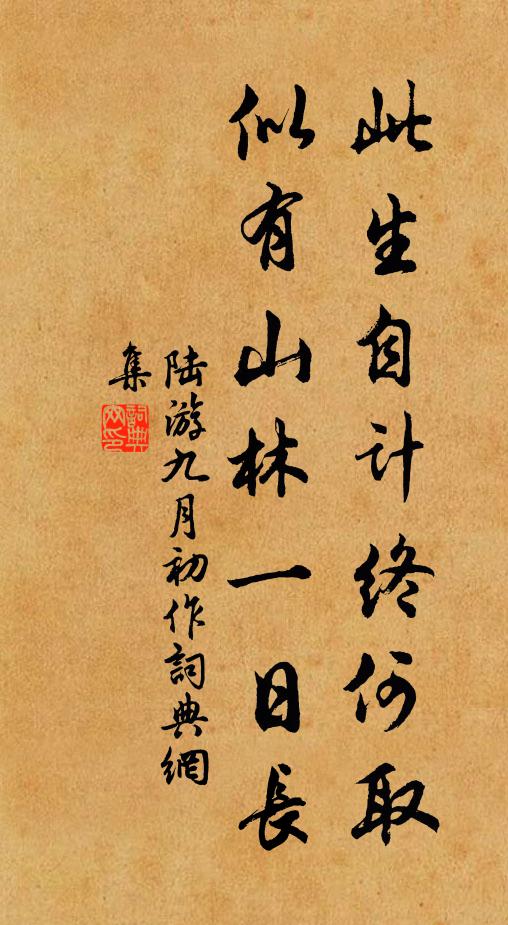 此生自计终何取
似有山林一日長
陆游九月初作詞典網
集
詞典网印